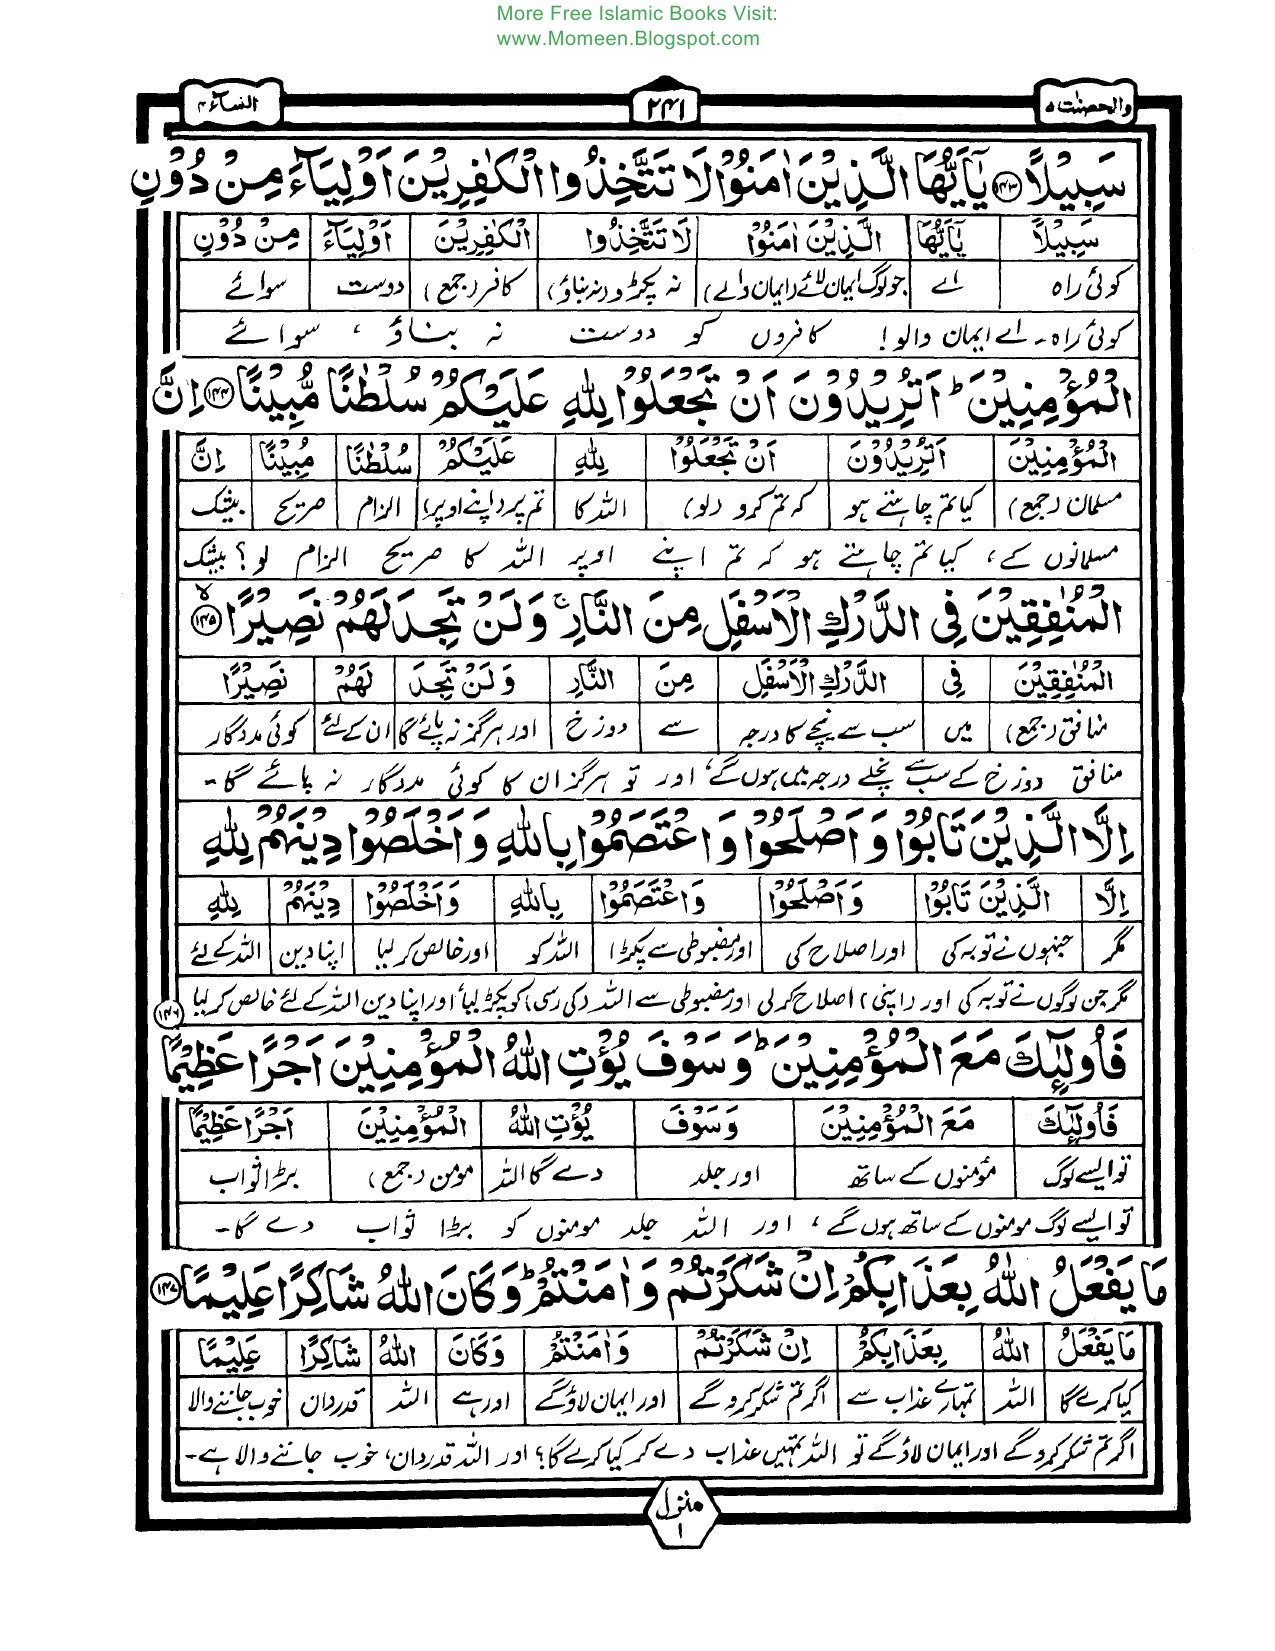 More Free Islamic Books Visit:
www.Momeen.Blogspot.com
والمحصنت ۵
۲۴۱
النساء ۴
سَبِيْلًا ۝۱۴۳ يٰٓاَيُّهَا الَّذِيْنَ اٰمَنُوْا لَا تَتَّخِذُوا الْكٰفِرِيْنَ اَوْلِيَآءَ مِنْ دُوْنِ
سَبِيْلًا يٰٓاَيُّهَا الَّذِيْنَ اٰمَنُوْا لَا تَتَّخِذُوا الْكٰفِرِيْنَ اَوْلِيَآءَ مِنْ دُوْنِ
کوئی راہ اے جو لوگ ایمان لائے (ایمان والے) نہ پکڑو (نہ بناؤ) کافر (جمع) دوست سوائے
کوئی راہ۔ اے ایمان والو! کافروں کو دوست نہ بناؤ ، سوائے
الْمُؤْمِنِيْنَ ؕ اَتُرِيْدُوْنَ اَنْ تَجْعَلُوْا لِلّٰهِ عَلَيْكُمْ سُلْطٰنًا مُّبِيْنًا ۝۱۴۴ اِنَّ
الْمُؤْمِنِيْنَ اَتُرِيْدُوْنَ اَنْ تَجْعَلُوْا لِلّٰهِ عَلَيْكُمْ سُلْطٰنًا مُّبِيْنًا اِنَّ
مسلمان (جمع) کیا تم چاہتے ہو کہ تم کرو (لو) اللہ کا تم پر (اپنے اوپر) الزام صریح بیشک
مسلمانوں کے، کیا تم چاہتے ہو کہ تم اپنے اوپر اللہ کا صریح الزام لو؟ بیشک
الْمُنٰفِقِيْنَ فِى الدَّرْكِ الْاَسْفَلِ مِنَ النَّارِ ۚ وَلَنْ تَجِدَ لَهُمْ نَصِيْرًا ۝۱۴۵ ۙ
الْمُنٰفِقِيْنَ فِى الدَّرْكِ الْاَسْفَلِ مِنَ النَّارِ وَلَنْ تَجِدَ لَهُمْ نَصِيْرًا
منافق (جمع) میں سب سے نیچے کا درجہ سے دوزخ اور ہرگز نہ پائے گا ان کے لئے کوئی مددگار
منافق دوزخ کے سب سے نچلے درجہ میں ہوں گے، اور تو ہرگز ان کا کوئی مددگار نہ پائے گا۔
اِلَّا الَّذِيْنَ تَابُوْا وَاَصْلَحُوْا وَاعْتَصَمُوْا بِاللّٰهِ وَاَخْلَصُوْا دِيْنَهُمْ لِلّٰهِ
اِلَّا الَّذِيْنَ تَابُوْا وَاَصْلَحُوْا وَاعْتَصَمُوْا بِاللّٰهِ وَاَخْلَصُوْا دِيْنَهُمْ لِلّٰهِ
مگر جنہوں نے توبہ کی اور اصلاح کی اور مضبوطی سے پکڑا اللہ کو اور خالص کر لیا اپنا دین اللہ کے لئے
مگر جن لوگوں نے توبہ کی اور (اپنی) اصلاح کر لی اور مضبوطی سے اللہ (کی رسی) کو پکڑ لیا اور اپنا دین اللہ کے لئے خالص کر لیا
فَاُولٰٓئِكَ مَعَ الْمُؤْمِنِيْنَ ؕ وَسَوْفَ يُؤْتِ اللّٰهُ الْمُؤْمِنِيْنَ اَجْرًا عَظِيْمًا ۝۱۴۶
فَاُولٰٓئِكَ مَعَ الْمُؤْمِنِيْنَ وَسَوْفَ يُؤْتِ اللّٰهُ الْمُؤْمِنِيْنَ اَجْرًا عَظِيْمًا
تو ایسے لوگ مؤمنوں کے ساتھ اور جلد دے گا اللہ مومن (جمع) بڑا ثواب
تو ایسے لوگ مومنوں کے ساتھ ہوں گے ، اور اللہ جلد مومنوں کو بڑا ثواب دے گا۔
مَا يَفْعَلُ اللّٰهُ بِعَذَابِكُمْ اِنْ شَكَرْتُمْ وَاٰمَنْتُمْ ؕ وَكَانَ اللّٰهُ شَاكِرًا عَلِيْمًا ۝۱۴۷
مَا يَفْعَلُ اللّٰهُ بِعَذَابِكُمْ اِنْ شَكَرْتُمْ وَاٰمَنْتُمْ وَكَانَ اللّٰهُ شَاكِرًا عَلِيْمًا
کیا کرے گا اللہ تمہارے عذاب سے اگر تم شکر کرو گے اور ایمان لاؤ گے اور ہے اللہ قدردان خوب جاننے والا
اگر تم شکر کرو گے اور ایمان لاؤ گے تو اللہ تمہیں عذاب دے کر کیا کرے گا؟ اور اللہ قدردان، خوب جاننے والا ہے۔
منزل
۱